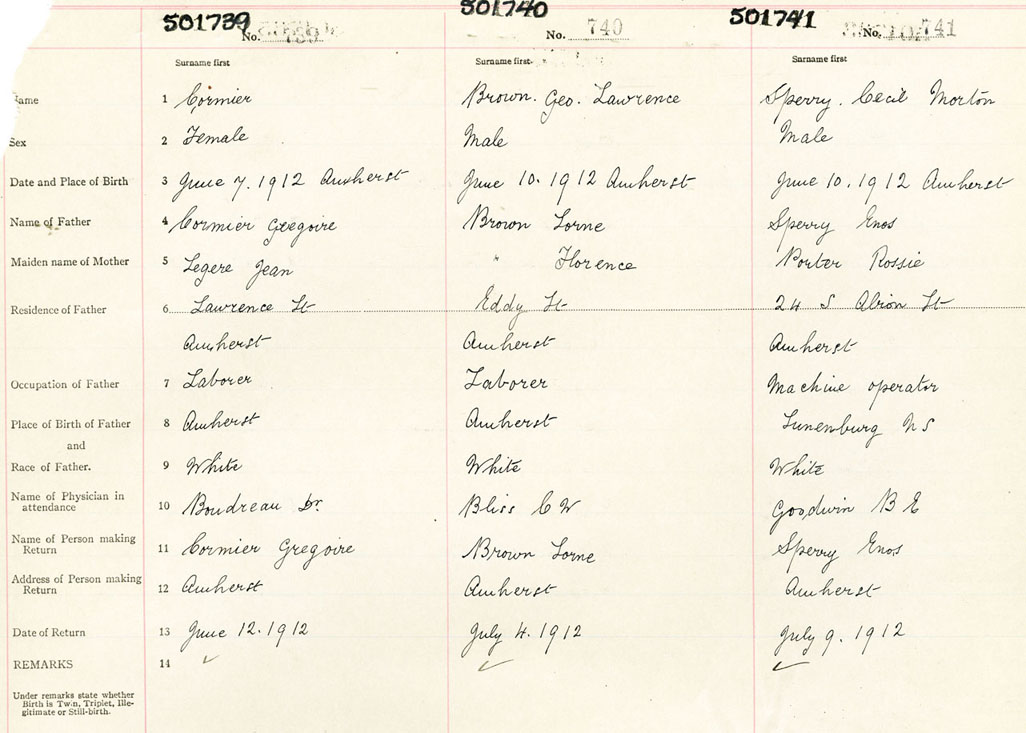 501739 501740 501741
No. 739 No. 740 No. 741
Surname first Surname first. Surname first
Name 1 Cormier Brown. Geo. Lawrence Sperry. Cecil Morton
Sex 2 Female Male Male
Date and Place of Birth 3 June 7. 1912 Amherst June 10. 1912 Amherst June 10. 1912 Amherst
Name of Father 4 Cormier Gregoire Brown Lorne Sperry Enos
Maiden name of Mother 5 Legere Jean " Florence Porter Rossie
Residence of Father 6 Lawrence St Eddy St 24 S Albion St
Amherst Amherst Amherst
Occupation of Father 7 Laborer Laborer Machine operator
Place of Birth of Father 8 Amherst Amherst Lunenburg N S
and
Race of Father. 9 White White White
Name of Physician in
attendance 10 Boudreau Dr. Bliss C W Goodwin B E
Name of Person making
Return 11 Cormier Gregoire Brown Lorne Sperry Enos
Address of Person making
Return 12 Amherst Amherst Amherst
Date of Return 13 June 12. 1912 July 4. 1912 July 9. 1912
REMARKS 14
Under remarks state whether
Birth is Twin, Triplet, Ille-
gitimate or Still-birth.